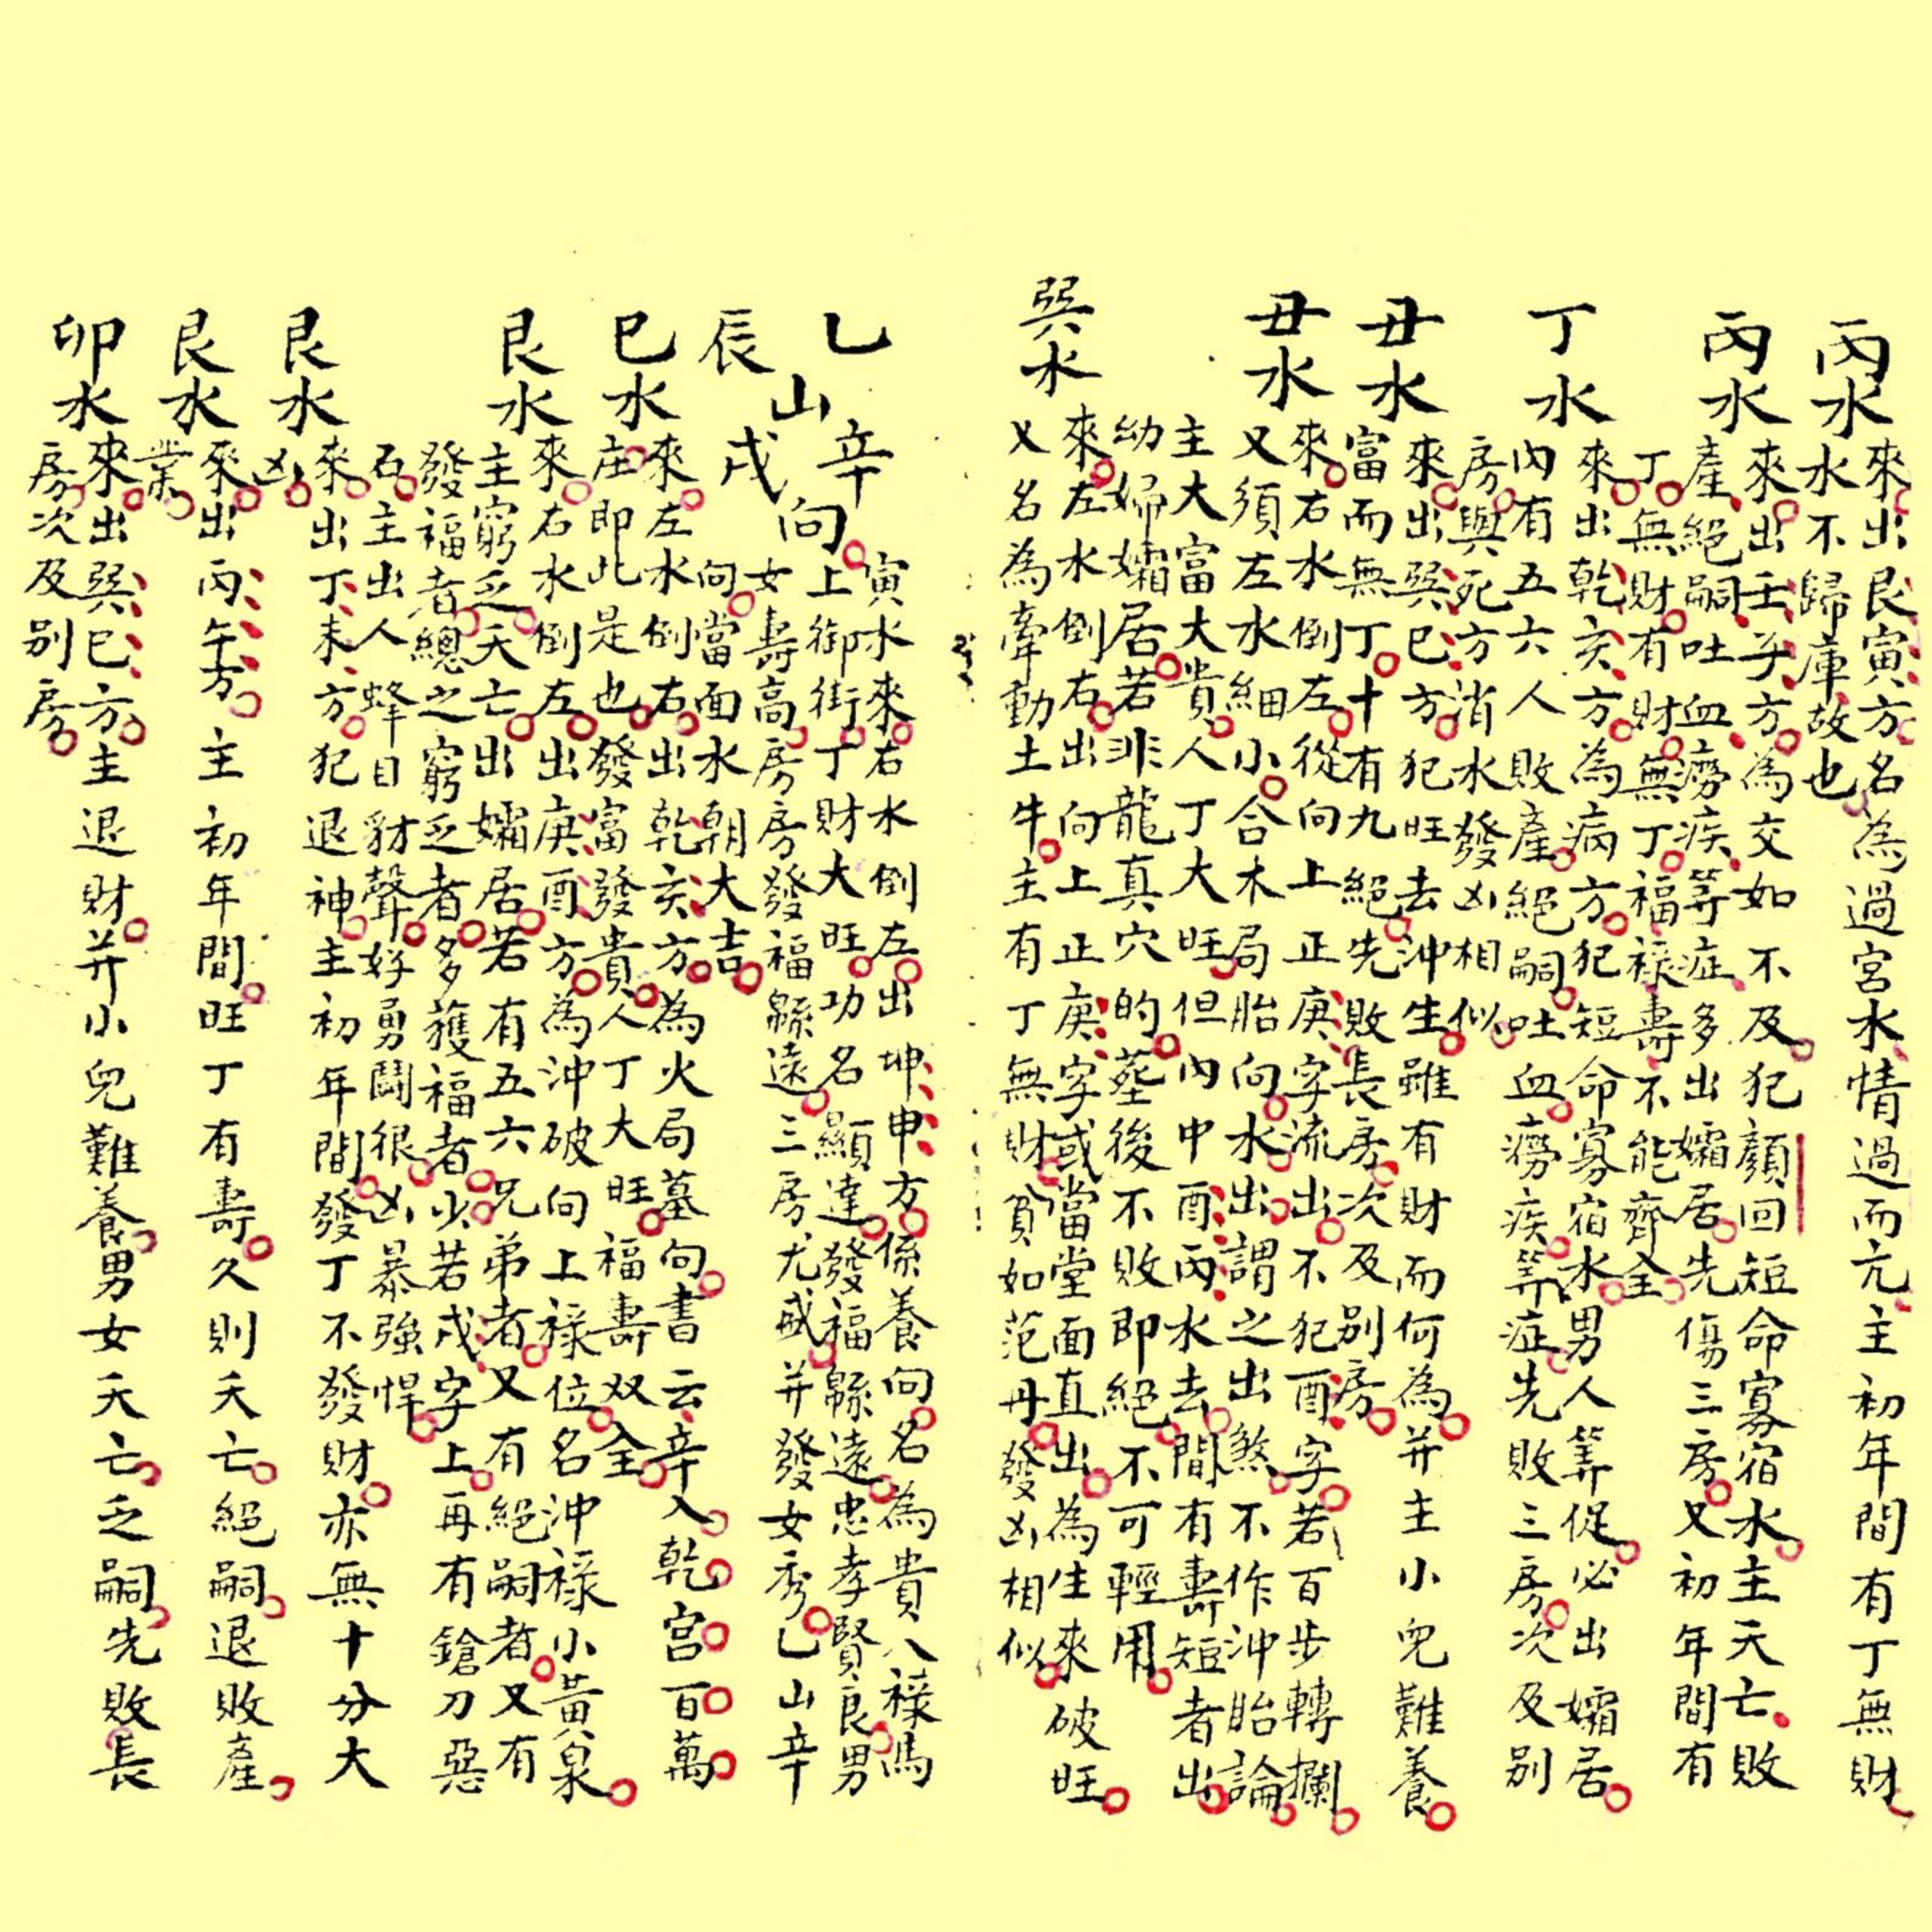 丙水來出艮寅方名為過宮水情過而亢主初年間有丁無財
水不歸庫故也
丙水來出壬子方為交如不及犯顏回短命寡宿水主夭亡敗
產絕嗣吐血癆疾等症多出孀居先傷三房又初年間有
丁無財有財無丁福祿壽不能齊全
丁水來出乾亥方為病方犯短命寡宿水男人等促必出孀居
內有五六人敗產絕嗣吐血癆疾等症先敗三房次及別
房與死方消水發凶相似
丑水來出巽巳方犯旺去沖生雖有財而何為并主小兒難養
富而無丁十有九絕先敗長房次及別房
丑水來右水倒左從向上正庚字流出不犯酉字若百步轉攔
又須左水細小合木局胎向水出謂之出煞不作沖胎論
主大富大貴人丁大旺但內中酉丙水去間有壽短者出
幼婦孀居若非龍真穴的塟後不敗即絕不可輕用
巽水來左水倒右出向上正庚字或當堂面直出為生來破旺
又名為牽動土牛主有丁無財貧如范丹發凶相似
乙山辛向寅水來右水倒左出坤申方係養向名為貴人祿馬
上御街丁財大旺功名顯達發福綿遠忠孝賢良男
女壽高房房發福綿遠三房尤盛并發女秀乙山辛
辰戌向當面水朝大吉
巳水來左水倒右出乾亥方為火局墓向書云辛入乾宮百萬
庄即此是也發富發貴人丁大旺福壽双全
艮水來右水倒左出庚酉方為沖破向上祿位名沖祿小黃泉
主窮乏夭亡出孀居若有五六兄弟者又有絕嗣者又有
發福者總之窮乏者多獲福者少若戌字上再有鎗刀惡
石主出人蜂目豺聲好勇鬪很凶暴強悍
艮水來出丁未方犯退神主初年間發丁不發財亦無十分大
凶
艮水來出丙午方主初年間旺丁有壽久則夭亡絕嗣退敗產
業
卯水來出巽巳方主退財并小兒難養男女夭亡乏嗣先敗長
房次及別房